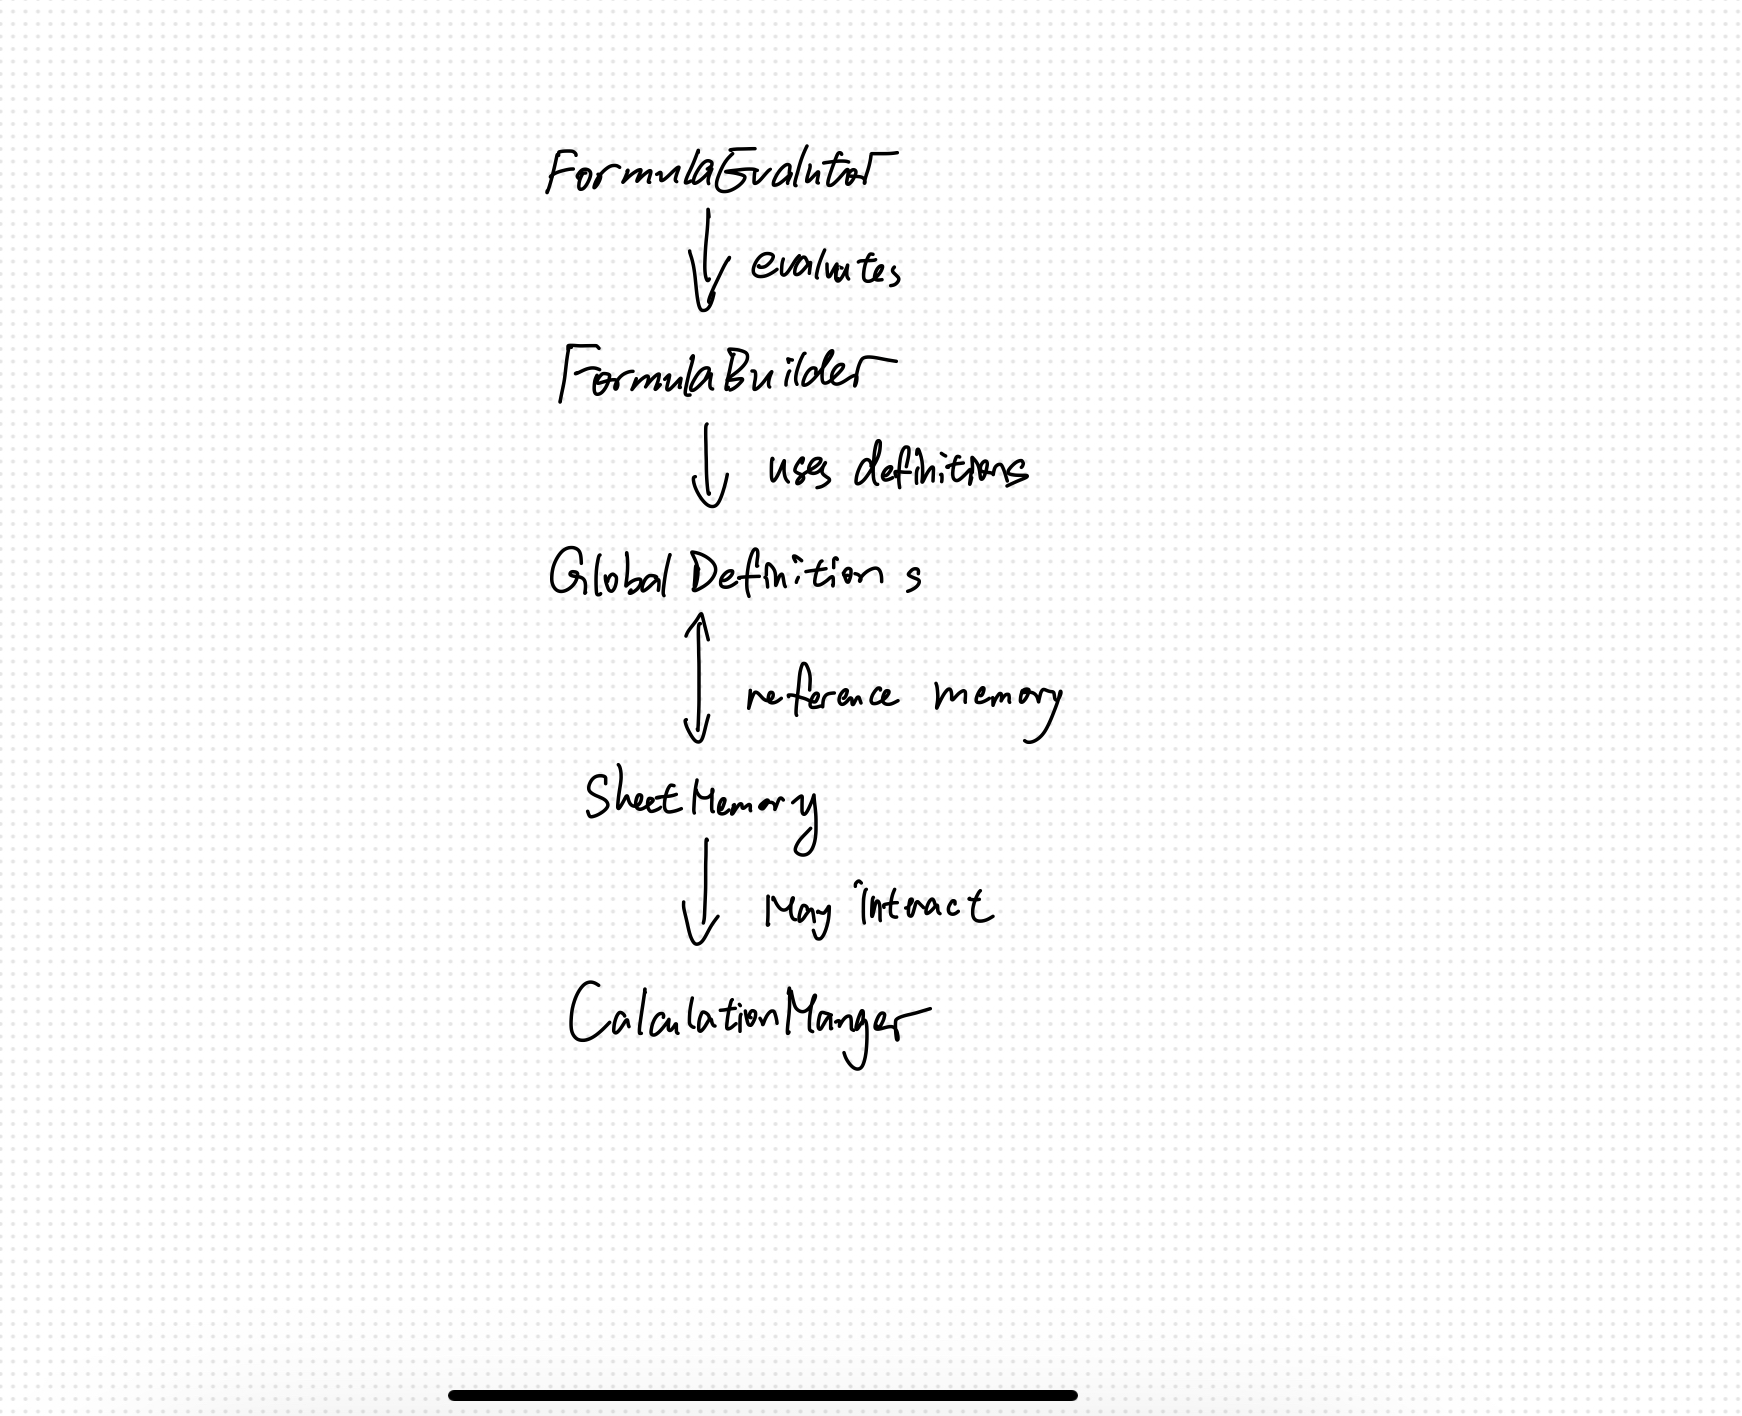 FormulaEvalutor
evaluates
FormulaBuilder
uses definitions
Global Definitions
reference memory
SheetMemory
May interact
CalculationManger